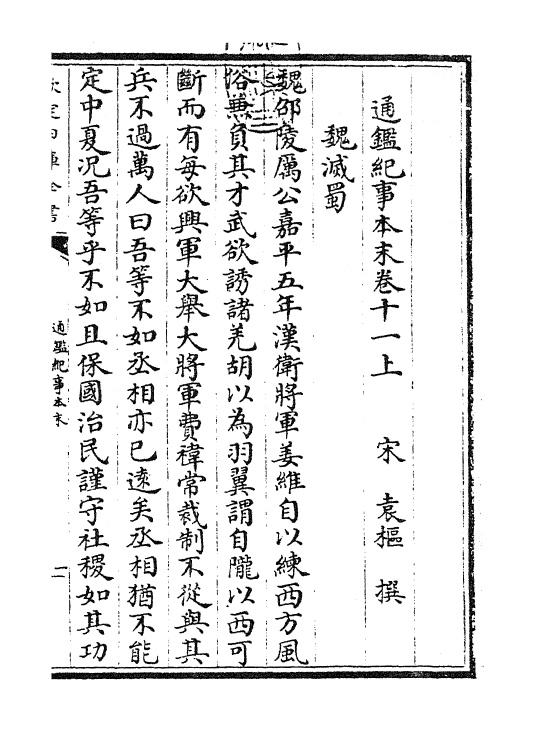 通鑑紀事本末卷十一上 宋 袁樞 撰
魏滅蜀
魏邵陵厲公嘉平五年漢衛將軍姜維自以練西方風
俗兼負其才武欲誘諸羌胡以為羽翼謂自隴以西可
斷而有每欲興軍大舉大將軍費禕常裁制不從與其
兵不過萬人曰吾等不如丞相亦已逺矣丞相猶不能
定中夏況吾等乎不如且保國治民謹守社稷如其功
欽定四庫全書
通鑑紀事本末